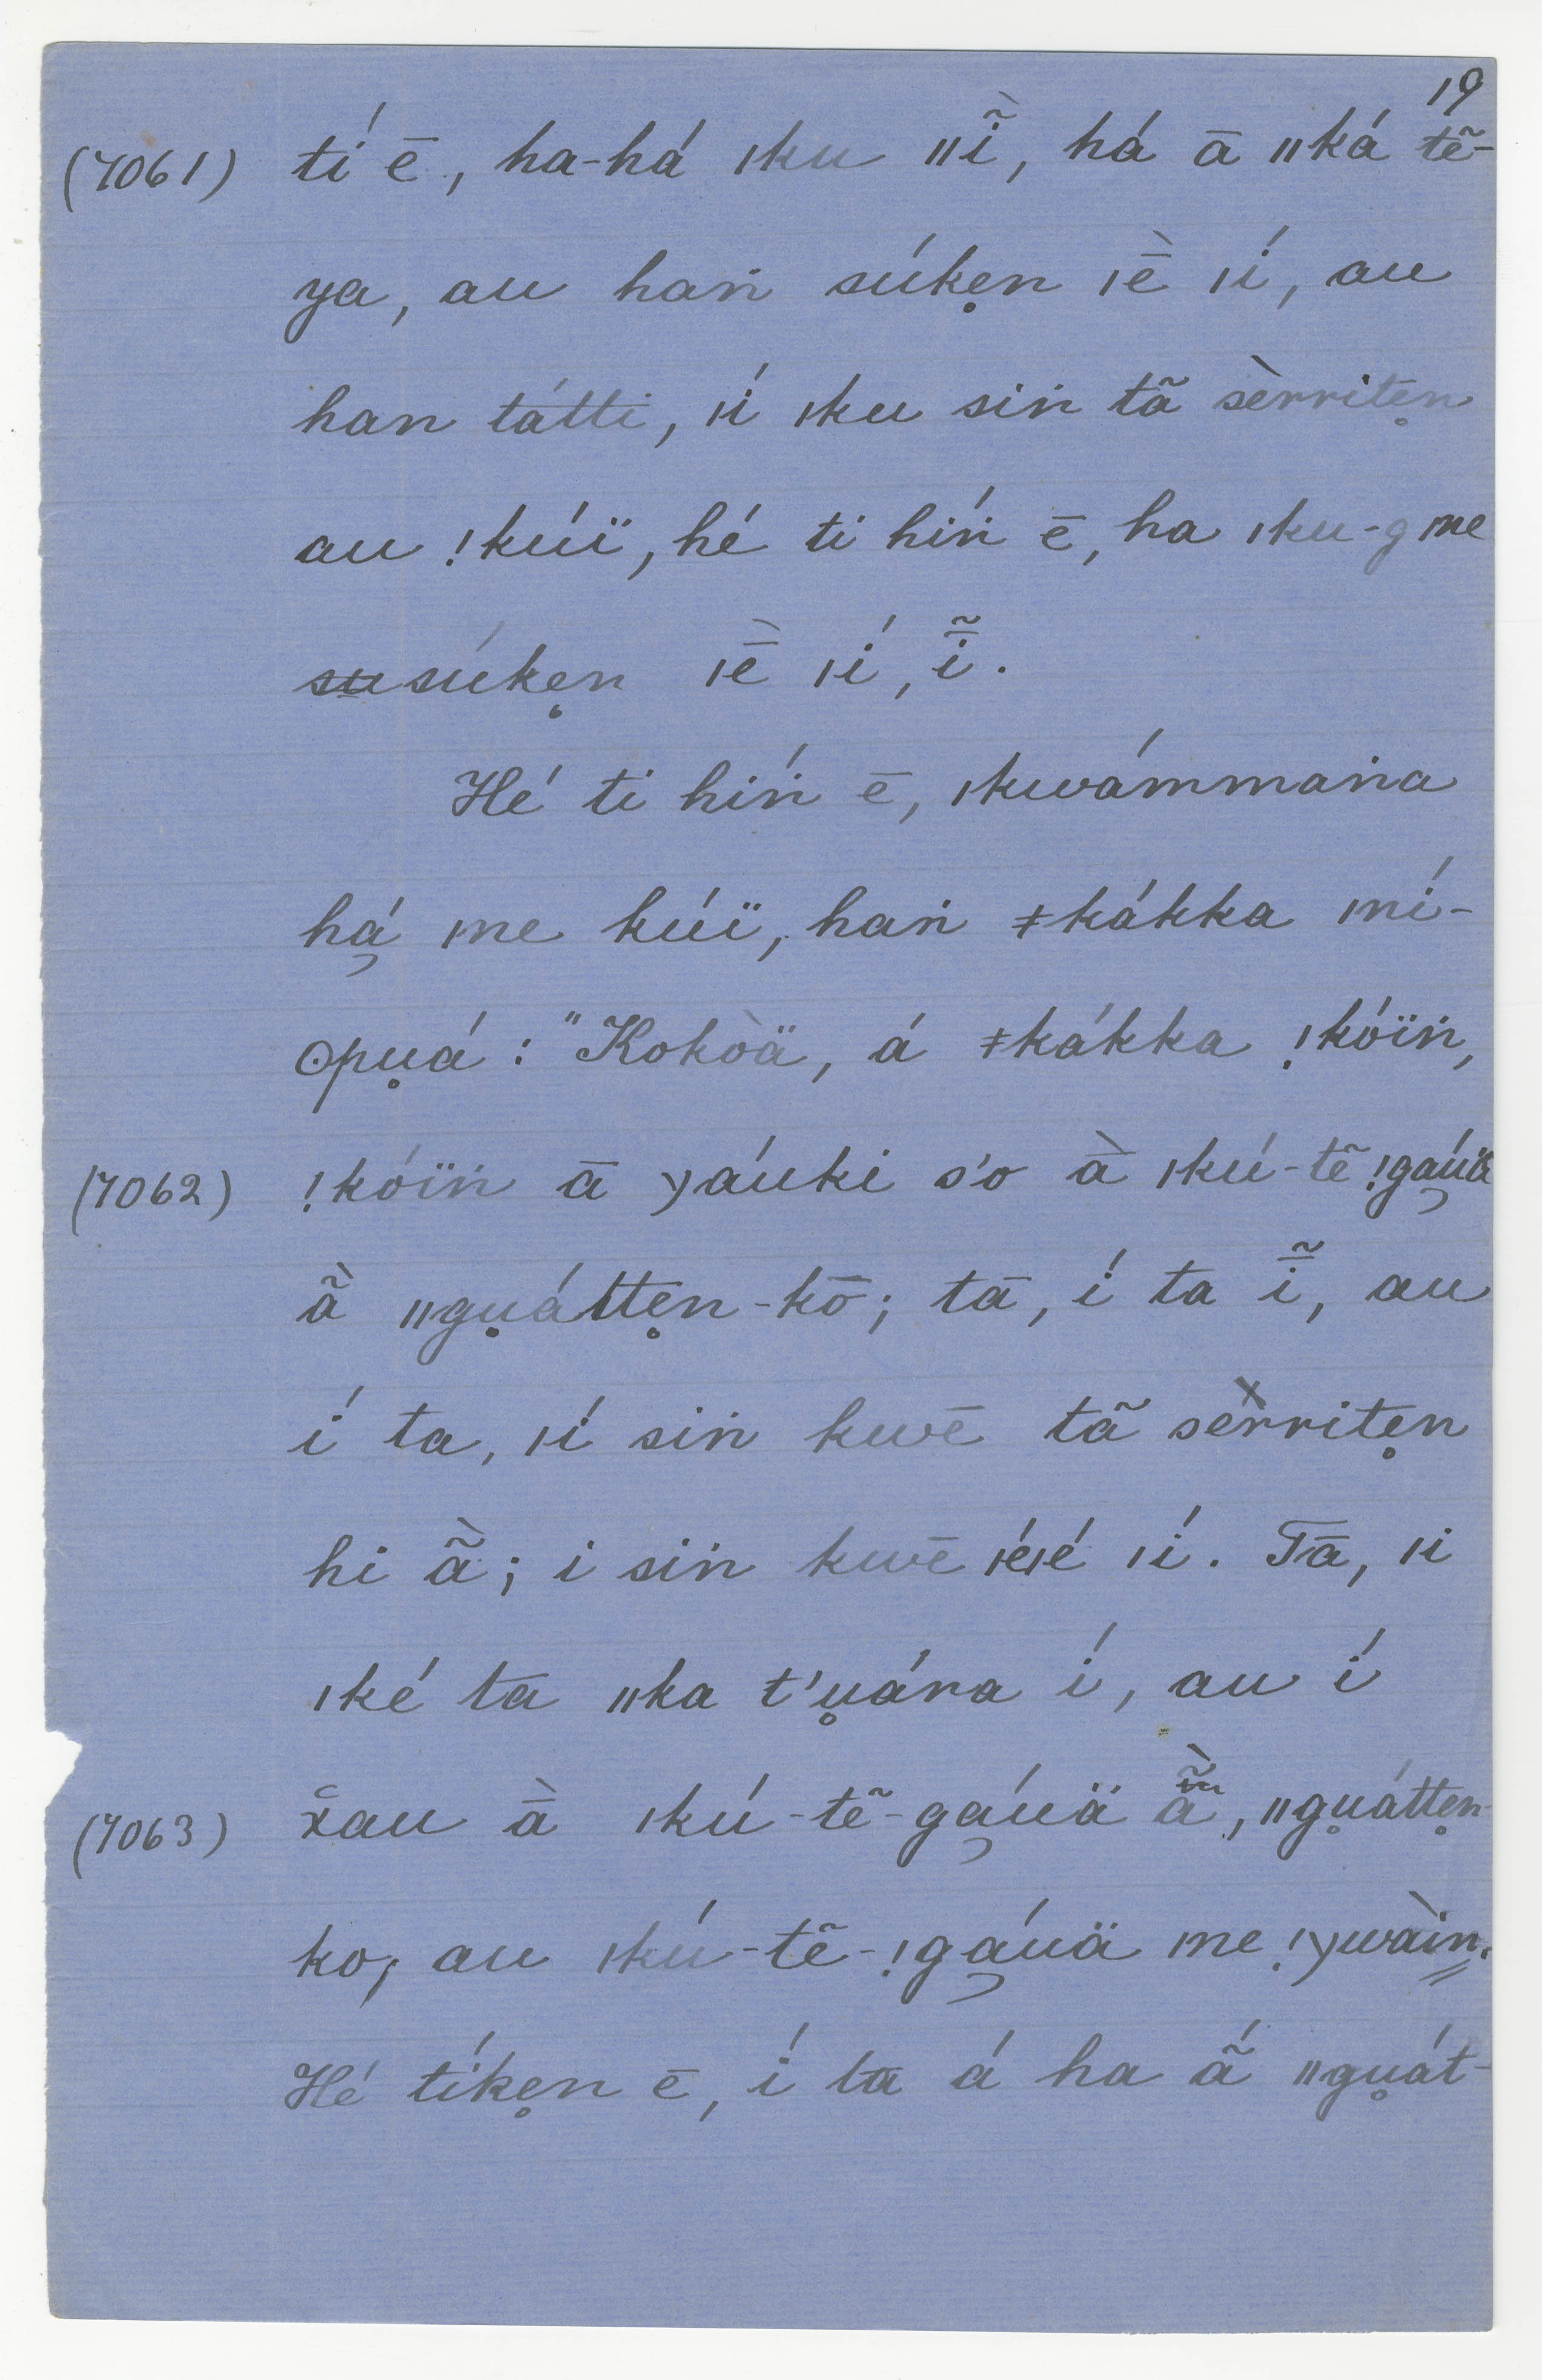 19
(7061) tí ē, ha-há ǀku ǁĩ̀, há ā ǁká tẽ-
ya, au haṅ súken̥ ǀḕ ǀí, au
han tátti, ǀí ǀku siṅ tã sèrriten̥
au ǃkúï, hé ti hiṅ́ ē, ha ǀku-g ǀne
su súken̥ ǀḕ ǀí, ī̃.
Hé ti hiṅ́ ē, ǀkwámmaṅa
há̡ ǀne kúï, haṅ ǂkákka ǀní-
ʘpu̥á: "Kokòä, á ǂkákka ǃkóïṅ,
(7062) ǃkóïṅ ā χáuki s'o ā̀ ǀkú-tẽ ǃga̡úä
ã̀ ǁgu̥átten̥-kō; tā, í ta ī̃, au
í ta, ǀí siṅ kwē tã sèrriten̥
hi ã̀; i siṅ kwē ǀéǀé ǀí. Tā, ǀi
ǀké ta ǁka t'u̥ára í, au í
(7063) x̆au ā̀ ǀkú-tẽ-ga̡úä ã̀, ǁgu̥átten̥-
ko, au ǀkú-tẽ-ǃga̡úä ǀne ǃχwàin.
Hé tíken̥ ē, í ta á ha ã́ ǁgu̥át-